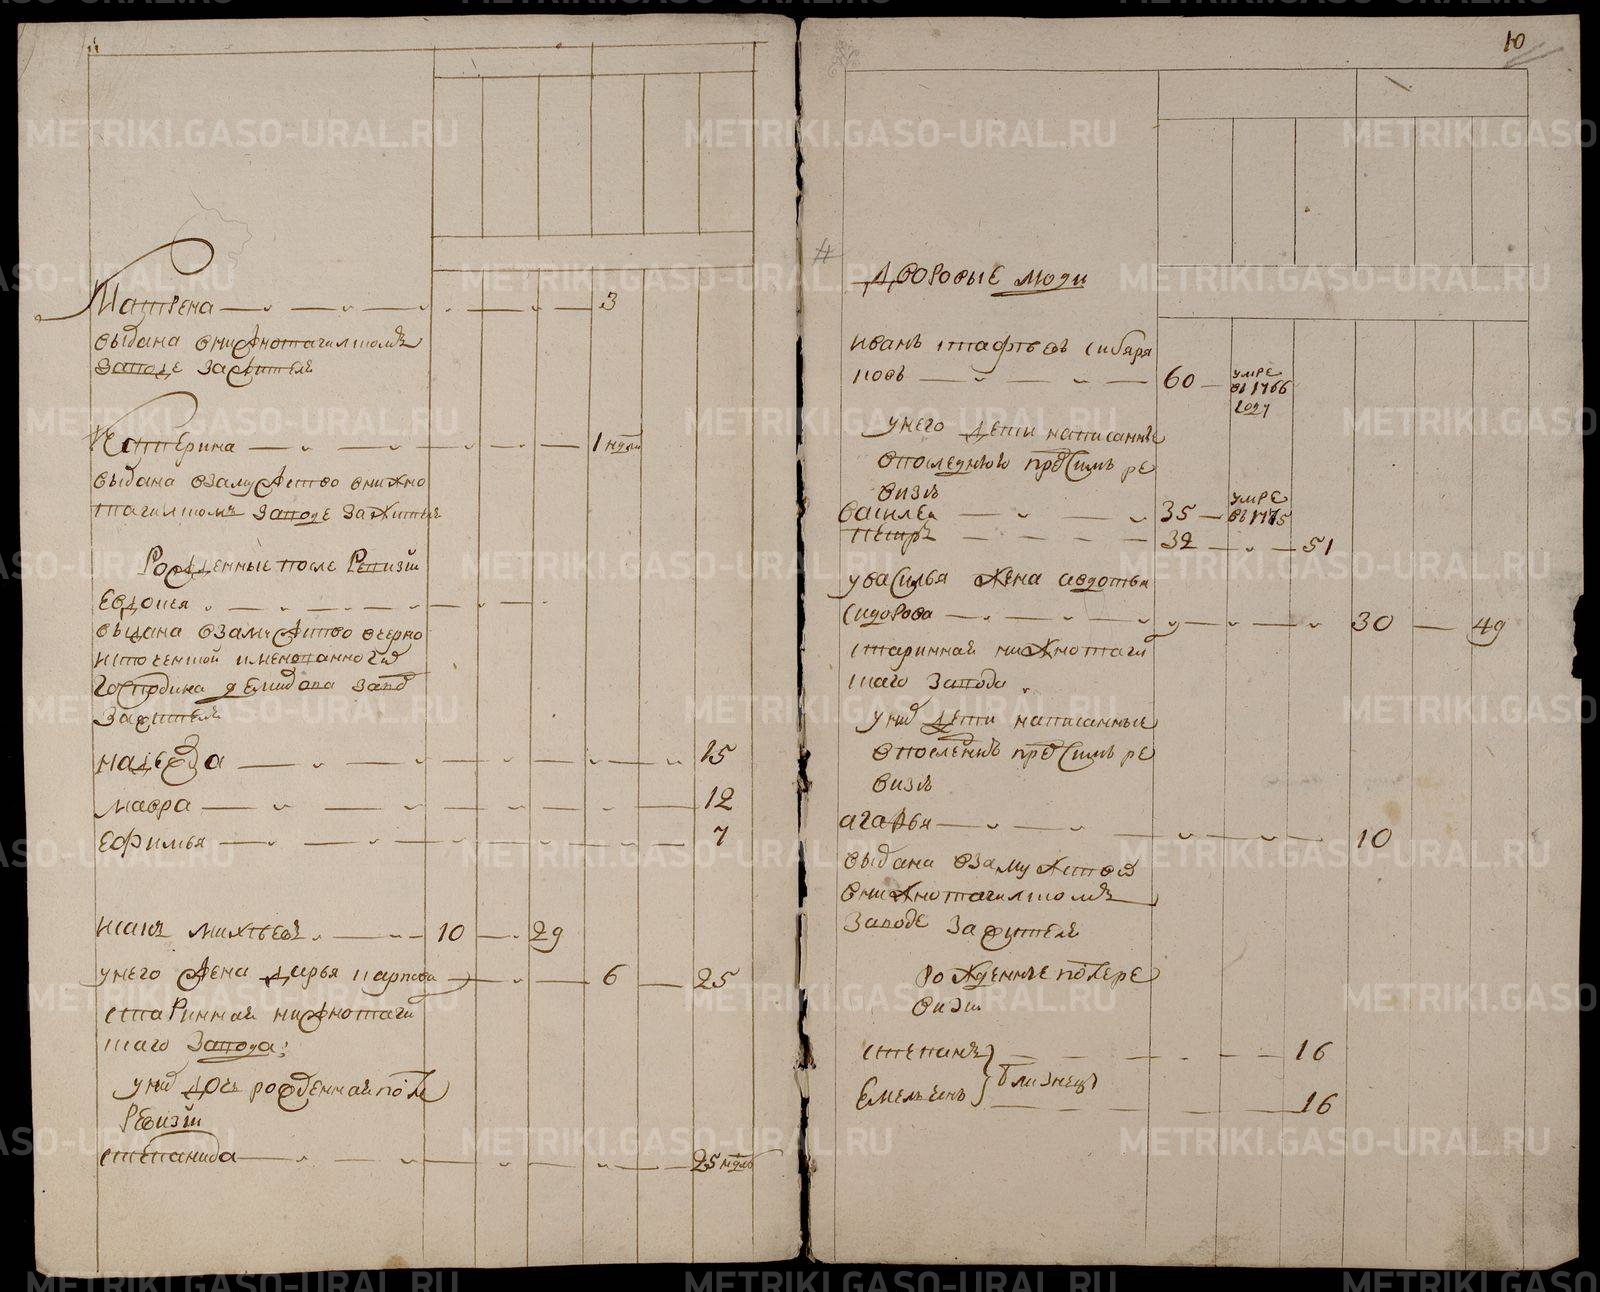 Матрена — — — — — — — 3
выдана внижнотагилском
заводе зажителя
Катерина — — — — — — — 1 недели
выдана взамужство внижно
тагилском заводе зажителя
Рожденные после Ревизии
Евдокея — — — — — —
выдана взамужство вчерно
источенской имянованного
Господина демидова завод
зажителя
надежда — — — — — — — 15
мавра — — — — — — — 12
ефимья — — — — — — — 7
михѣевъ — — — 10 — 29
унего жена дарья карпова — — — 6 — 25
старинная нижнотаги
лскаго завода
уних дочь рожденная после
Ревизии
степанида — — — — — — — 25 недель
10
Дворовые люди
иванъ сибиря
ковъ — — — — 60 — умре
в 1766
году
унего дети написанные
впоследнюю пред симъ ре
визию
василей — — — 35 — умре
в 1775
петръ — — — — 32 — — 51
увасилья жена авдотья
сидорова — — — — — — — 30 — 49
старинная нижнотагил
скаго завода
уних дети написанные
впоследнюю пред симъ ре
визию
агафья — — — — — — — 10
выдана взамужство
внижнотагилском
заводе зажителя
рожденные после ре
визии
степанъ — — — — — — 16
близнецы
Емельянъ — — — — — — 16